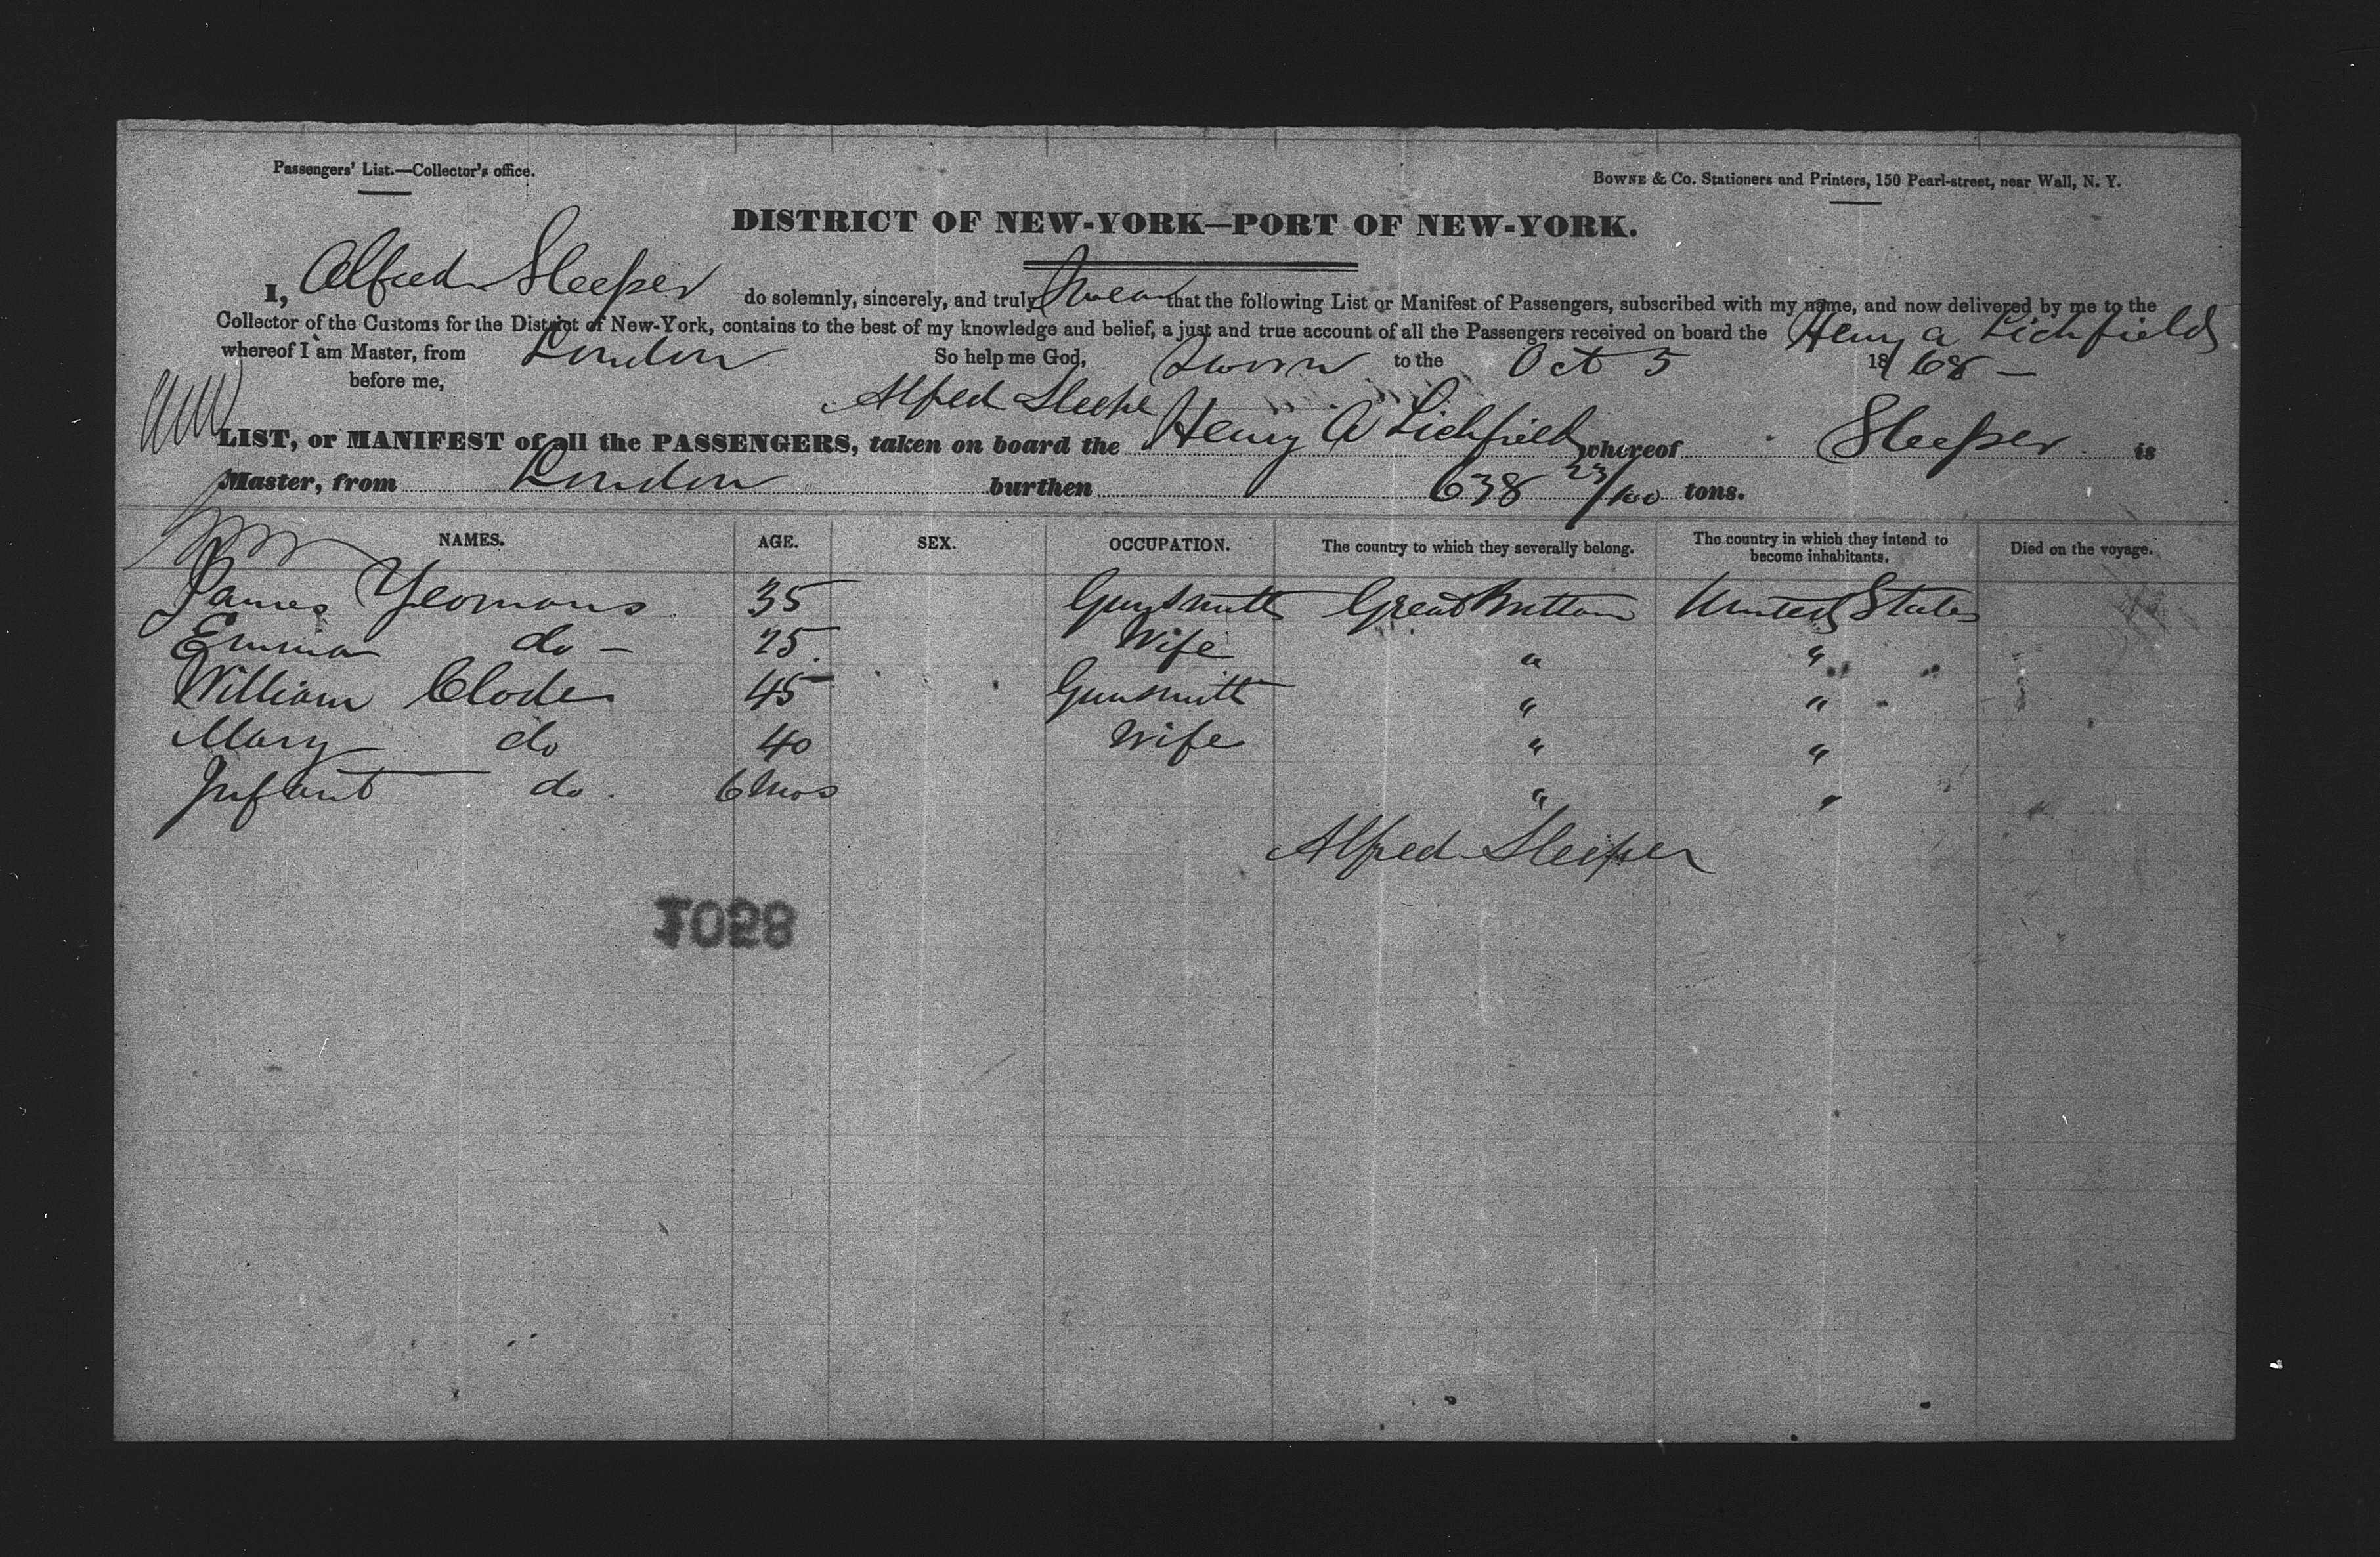 Passengers' List.—Collector's office.
BOWNE & Co. Stationers and Printers, 150 Pearl-street, near Wall, N. Y.
DISTRICT OF NEW-YORK—PORT OF NEW-YORK.
I, Alfred Sleeper do solemnly, sincerely, and truly Swear that the following List or Manifest of Passengers, subscribed with my name, and now delivered by me to the
Collector of the Customs for the District of New-York, contains to the best of my knowledge and belief, a just and true account of all the Passengers received on board the Henry A Lichfield
whereof I am Master, from London So help me God, Sworn to the Oct 5 18/68 —
before me, Alfred Sleeper
LIST, or MANIFEST of all the PASSENGERS, taken on board the Henry A Lichfield whereof Sleeper is
Master, from London burthen 638 23/100 tons.
NAMES. AGE. SEX. OCCUPATION. The country to which they severally belong. The country in which they intend to become inhabitants. Died on the voyage.
James Yeomans 35 Gunsmith Great Britain United States
Emma do — 25 Wife " "
William Clode 45 Gunsmith " "
Mary do 40 Wife " "
Infant do. 6 Mos " "
Alfred Sleeper
1028